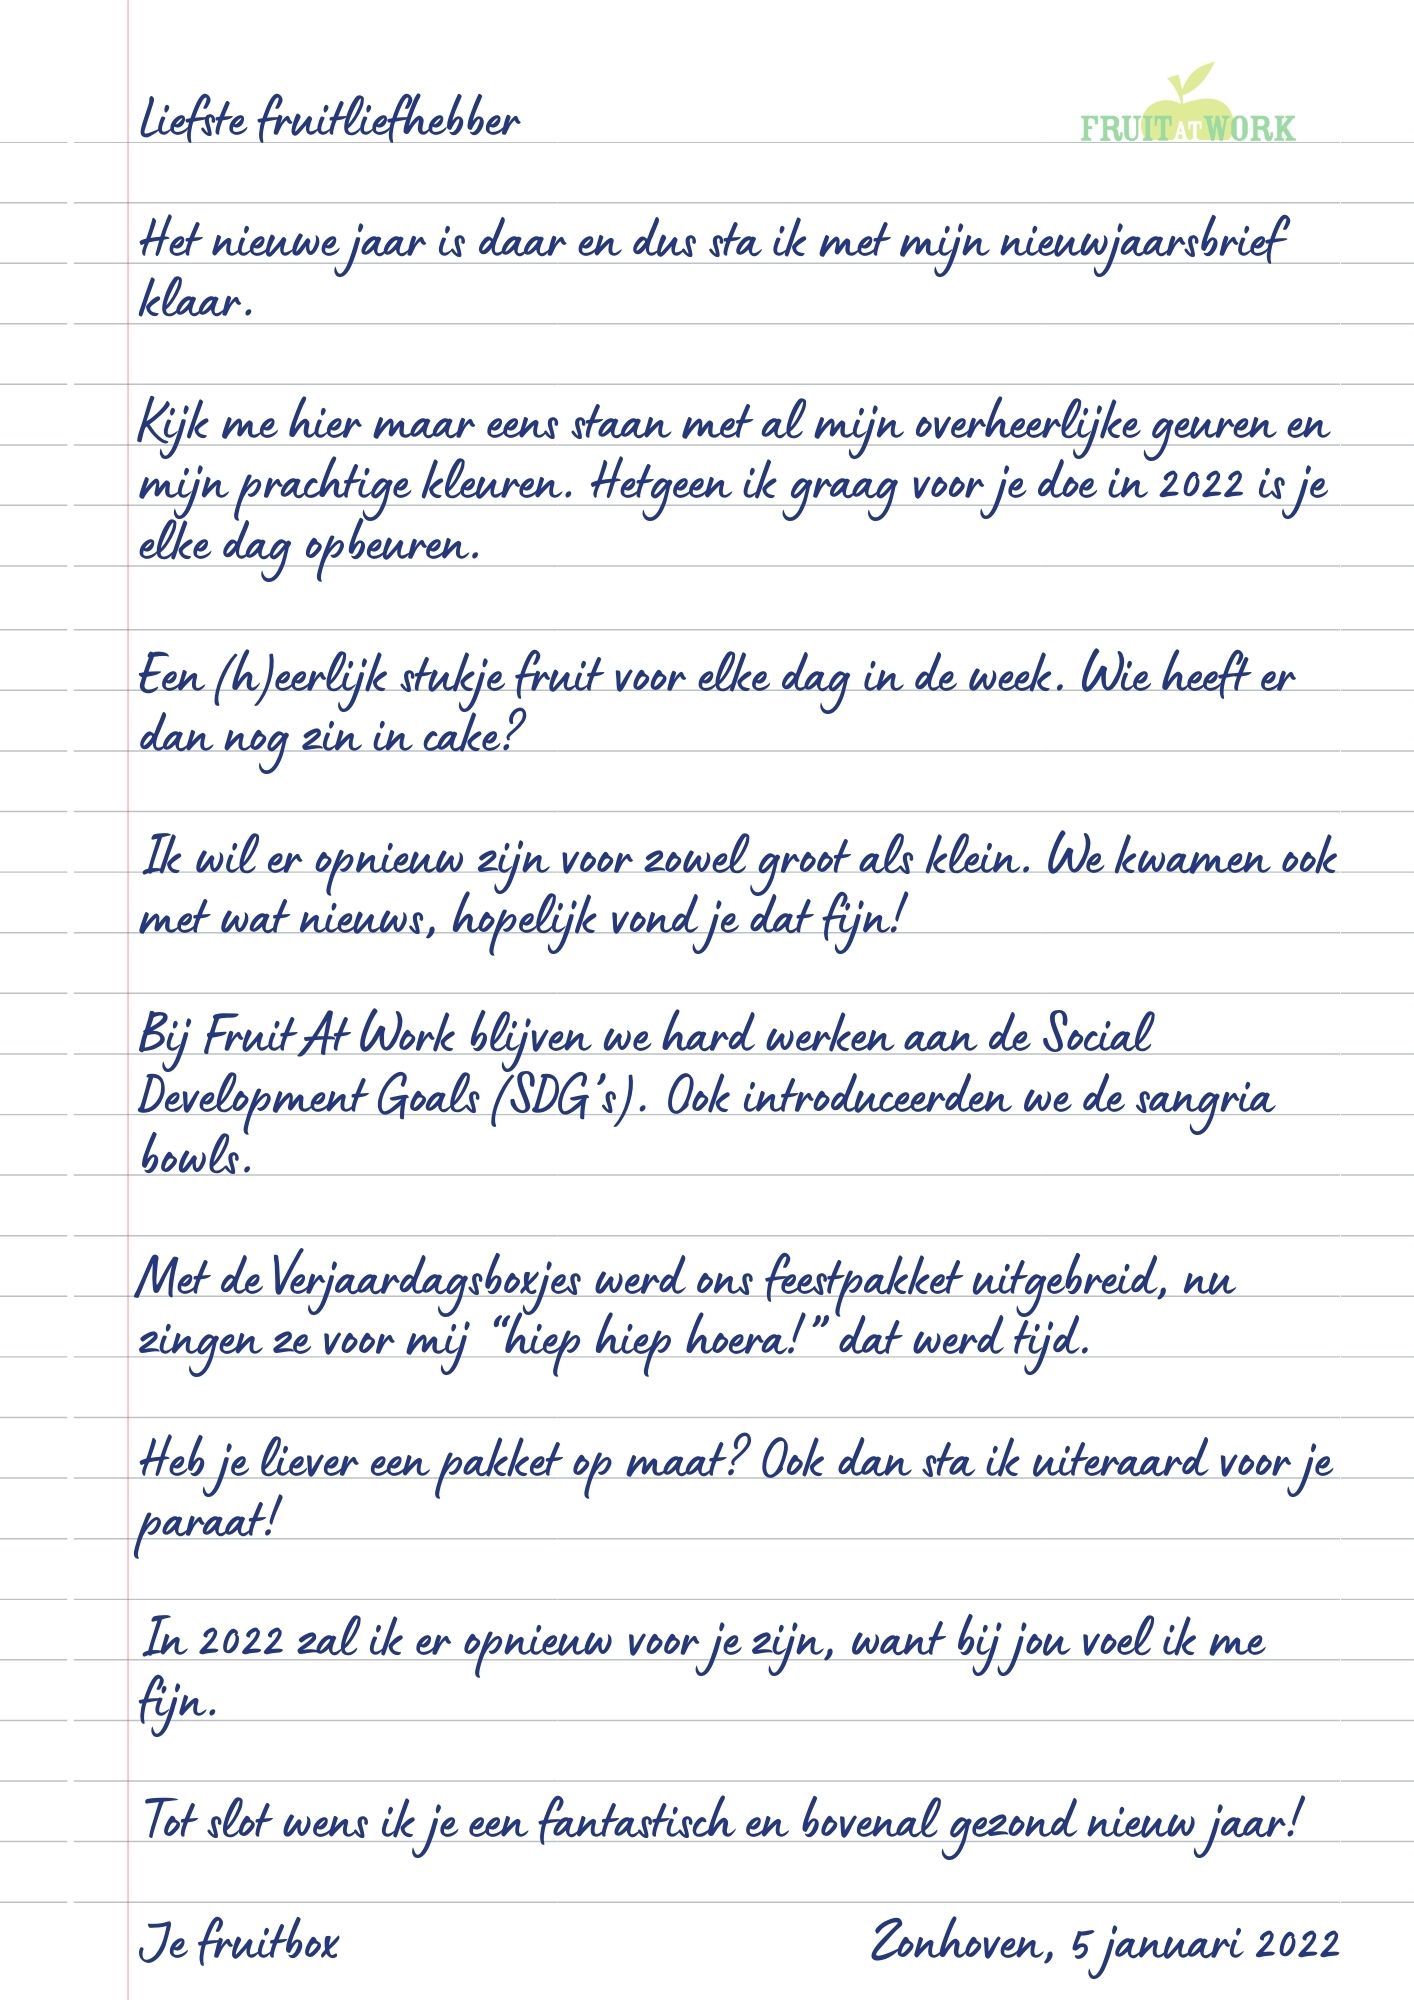 Liefste fruitliefhebber
FRUIT AT WORK
Het nieuwe jaar is daar en dus sta ik met mijn nieuwjaarsbrief
klaar.
Kijk me hier maar eens staan met al mijn overheerlijke geuren en
mijn prachtige kleuren. Hetgeen ik graag voor je doe in 2022 is je
elke dag opbeuren.
Een (h)eerlijk stukje fruit voor elke dag in de week. Wie heeft er
dan nog zin in cake?
Ik wil er opnieuw zijn voor zowel groot als klein. We kwamen ook
met wat nieuws, hopelijk vond je dat fijn!
Bij Fruit At Work blijven we hard werken aan de Social
Development Goals (SDG's). Ook introduceerden we de sangria
bowls.
Met de Verjaardagsboxjes werd ons feestpakket uitgebreid, nu
zingen ze voor mij “hiep hiep hoera!” dat werd tijd.
Heb je liever een pakket op maat? Ook dan sta ik uiteraard voor je
paraat!
In 2022 zal ik er opnieuw voor je zijn, want bij jou voel ik me
fijn.
Tot slot wens ik je een fantastisch en bovenal gezond nieuw jaar!
Je fruitbox
Zonhoven, 5 januari 2022